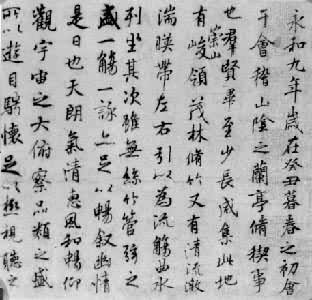 永和九年歲在癸丑暮春之初會
于會稽山陰之蘭亭脩稧事
也羣賢畢至少長咸集此地
有崇山峻領茂林脩竹又有清流激
湍暎帶左右引以為流觴曲水
列坐其次雖無絲竹管弦之
盛一觴一詠亦足以暢敘幽情
是日也天朗氣清惠風和暢仰
觀宇宙之大俯察品類之盛
所以遊目騁懷足以極視聽之